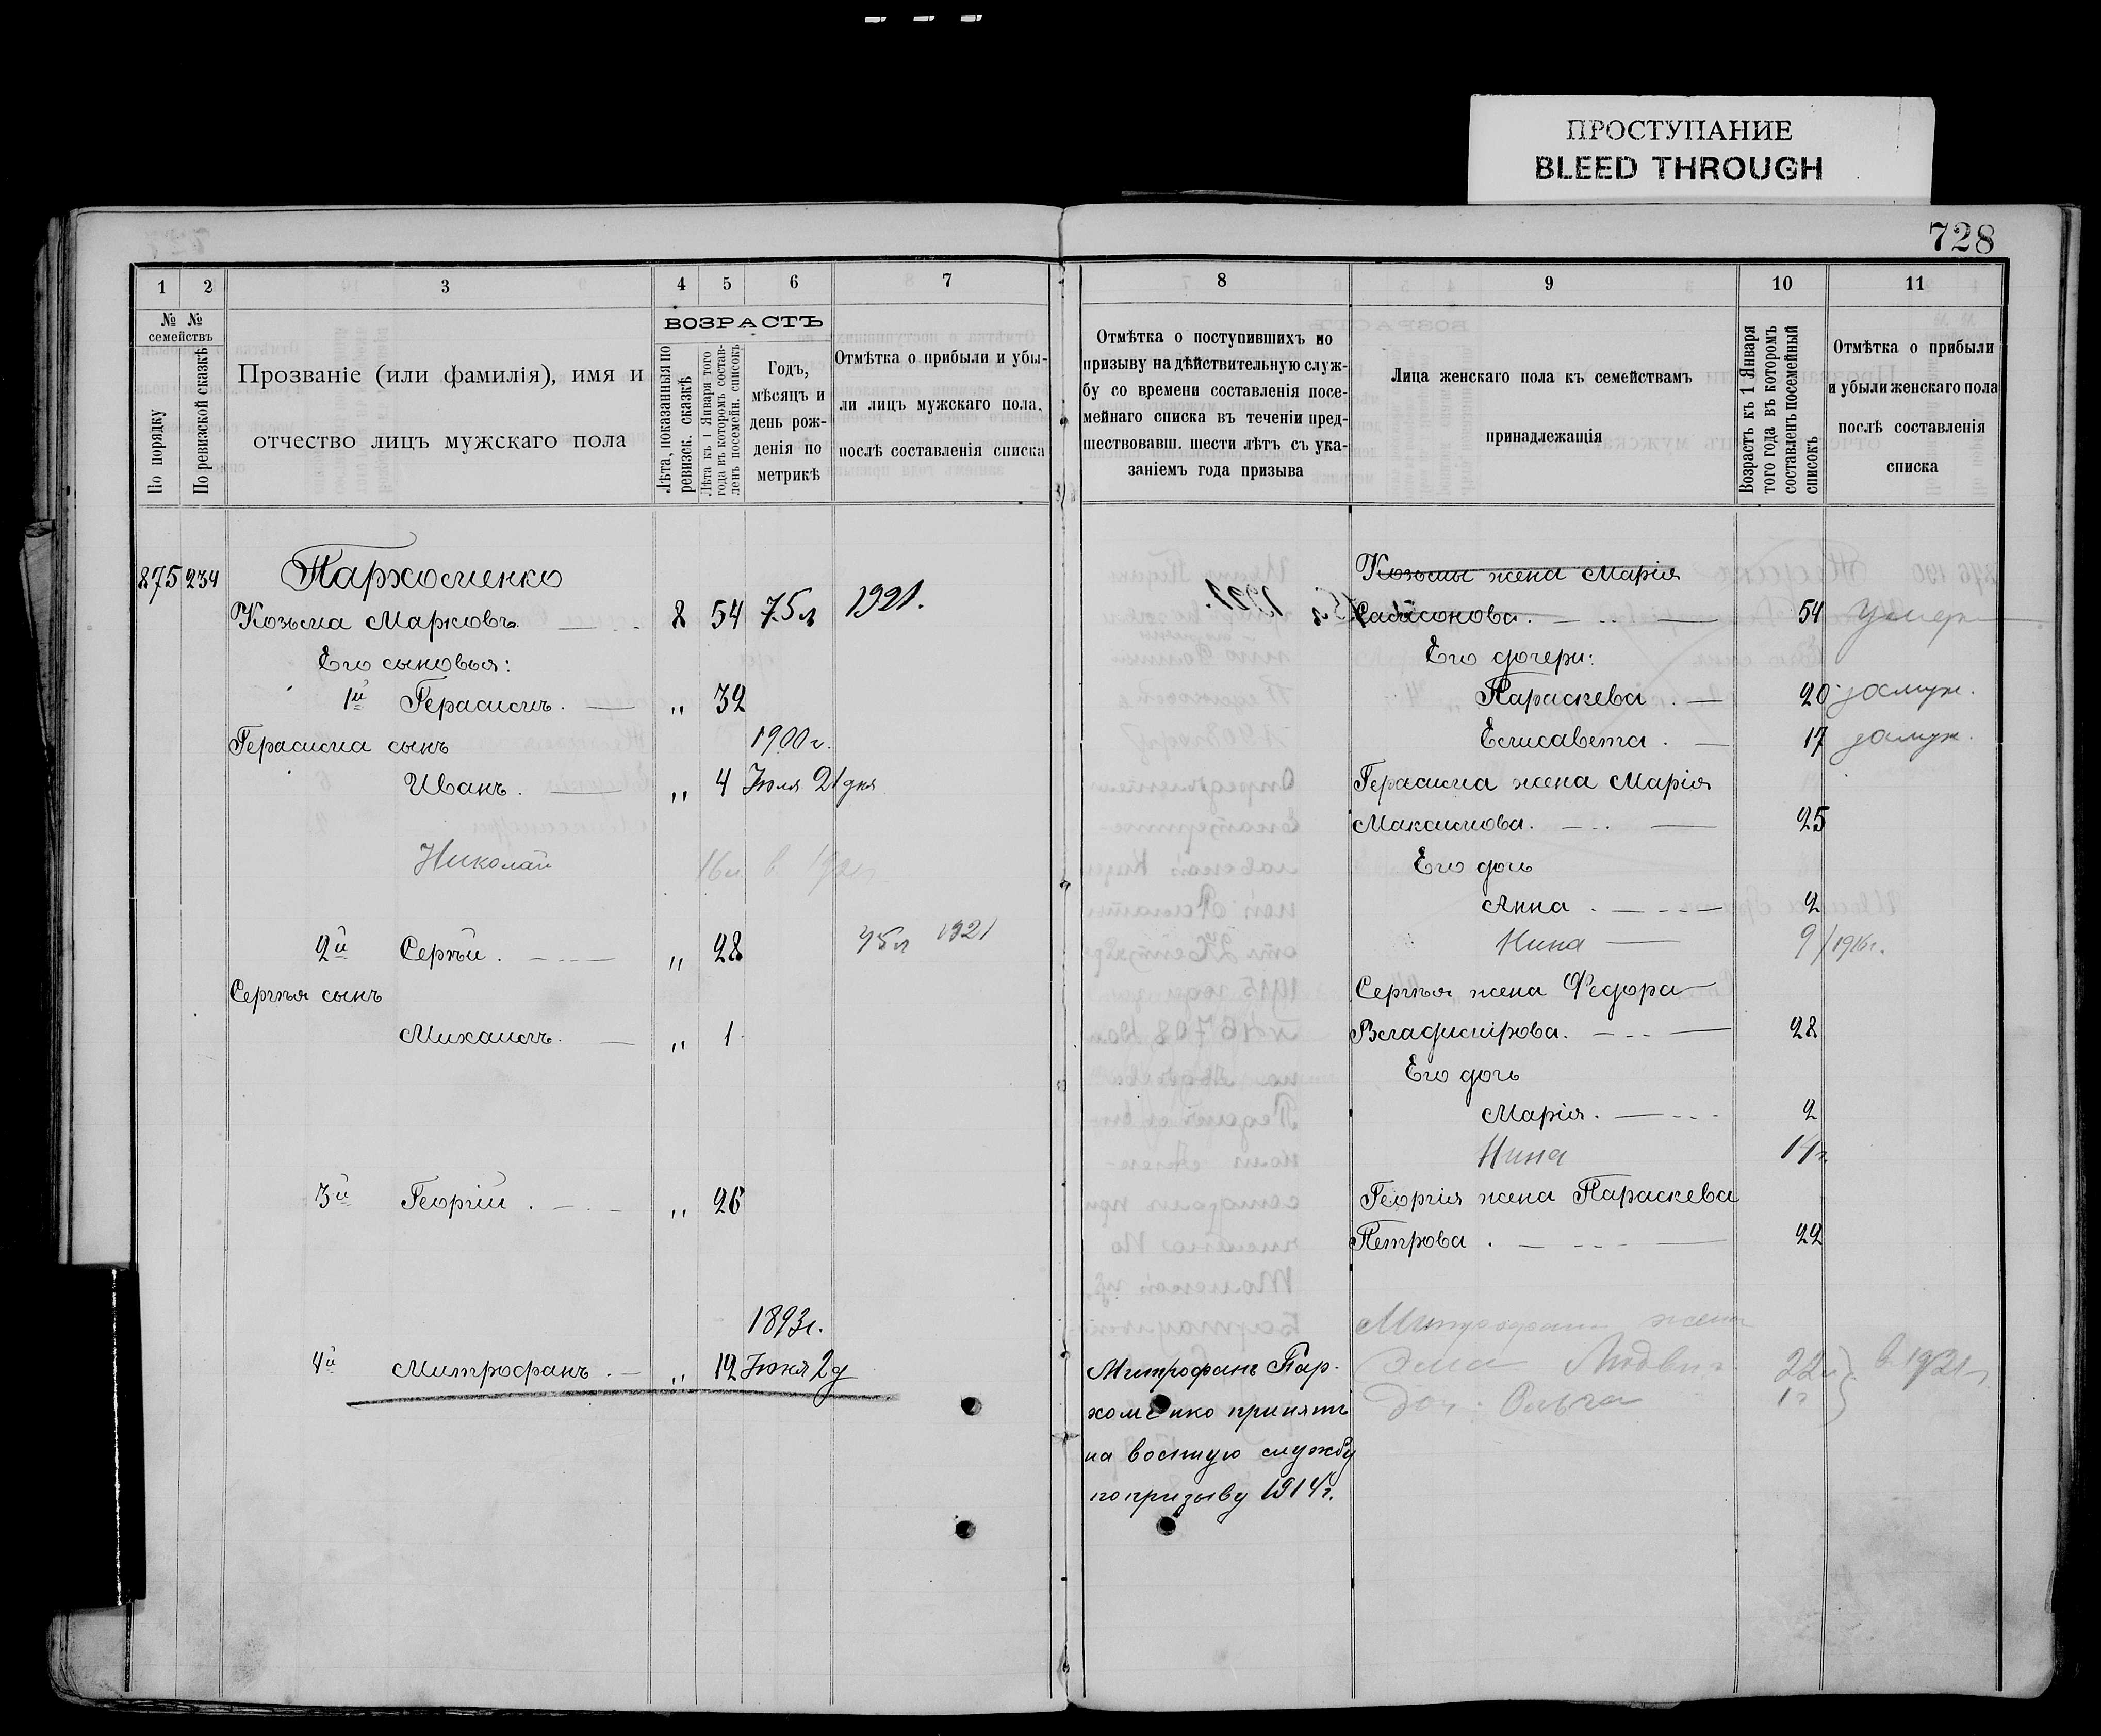 ПРОСТУПАНИЕ
BLEED THROUGH
728
1 2 3 4 5 6 7
№ №
семействъ
По порядку
По ревизской сказкѣ
Прозваніе (или фамилія), имя и
отчество лицъ мужскаго пола
ВОЗРАСТЪ
Лѣта, показанныя по
ревизск. сказкѣ
Лѣта къ 1 Января того
года въ которомъ состав-
ленъ посемейн. списокъ
Годъ,
мѣсяцъ и
день рож-
денія по
метрикѣ
Отмѣтка о прибыли и убы-
ли лицъ мужскаго пола,
послѣ составленія списка
875 234 Пархоменко
Козьма Марковъ 8 54 75 л 1921.
Его сыновья:
1й Герасимъ. „ 32
Герасима сынъ 1900 г.
Иванъ. „ 4 Іюля 21 дня
Николай 16 л в 1921 г.
2й Сергѣй. „ 28 45 л 1921
Сергѣя сынъ
Михаилъ. „ 1
3й Георгій. „ 26
1893 г.
4й Митрофанъ. „ 12 Іюня 2 д
8 9 10 11
Отмѣтка о поступившихъ по
призыву на дѣйствительную служ-
бу со времени составленія посе-
мейнаго списка въ теченіи пред-
шествовавш. шести лѣтъ съ ука-
заніемъ года призыва
Лица женскаго пола къ семействамъ
принадлежащія
Возрастъ къ 1 Января
того года въ которомъ
составленъ посемейный
списокъ
Отмѣтка о прибыли
и убыли женскаго пола
послѣ составленія
списка
Козьмы жена Марія
Самсонова. 54 умерла
Его дочери:
Параскева. 20 замуж.
Елисавета. 17 замуж.
Герасима жена Марія
Максимова. 25
Его дочь
Анна. 2
Нина 9 / 1916 г.
Сергѣя жена Ѳедора
Владимірова. 28
Его дочь
Марія. 2
Нина 14 г.
Георгія жена Параскева
Петрова. 22
Митрофана жена
Эма 22 л } в 1921 г.
Доч: Ольга 1 г
Митрофанъ Пар-
хоменко принятъ
на военную службу
по призыву 1914 г.